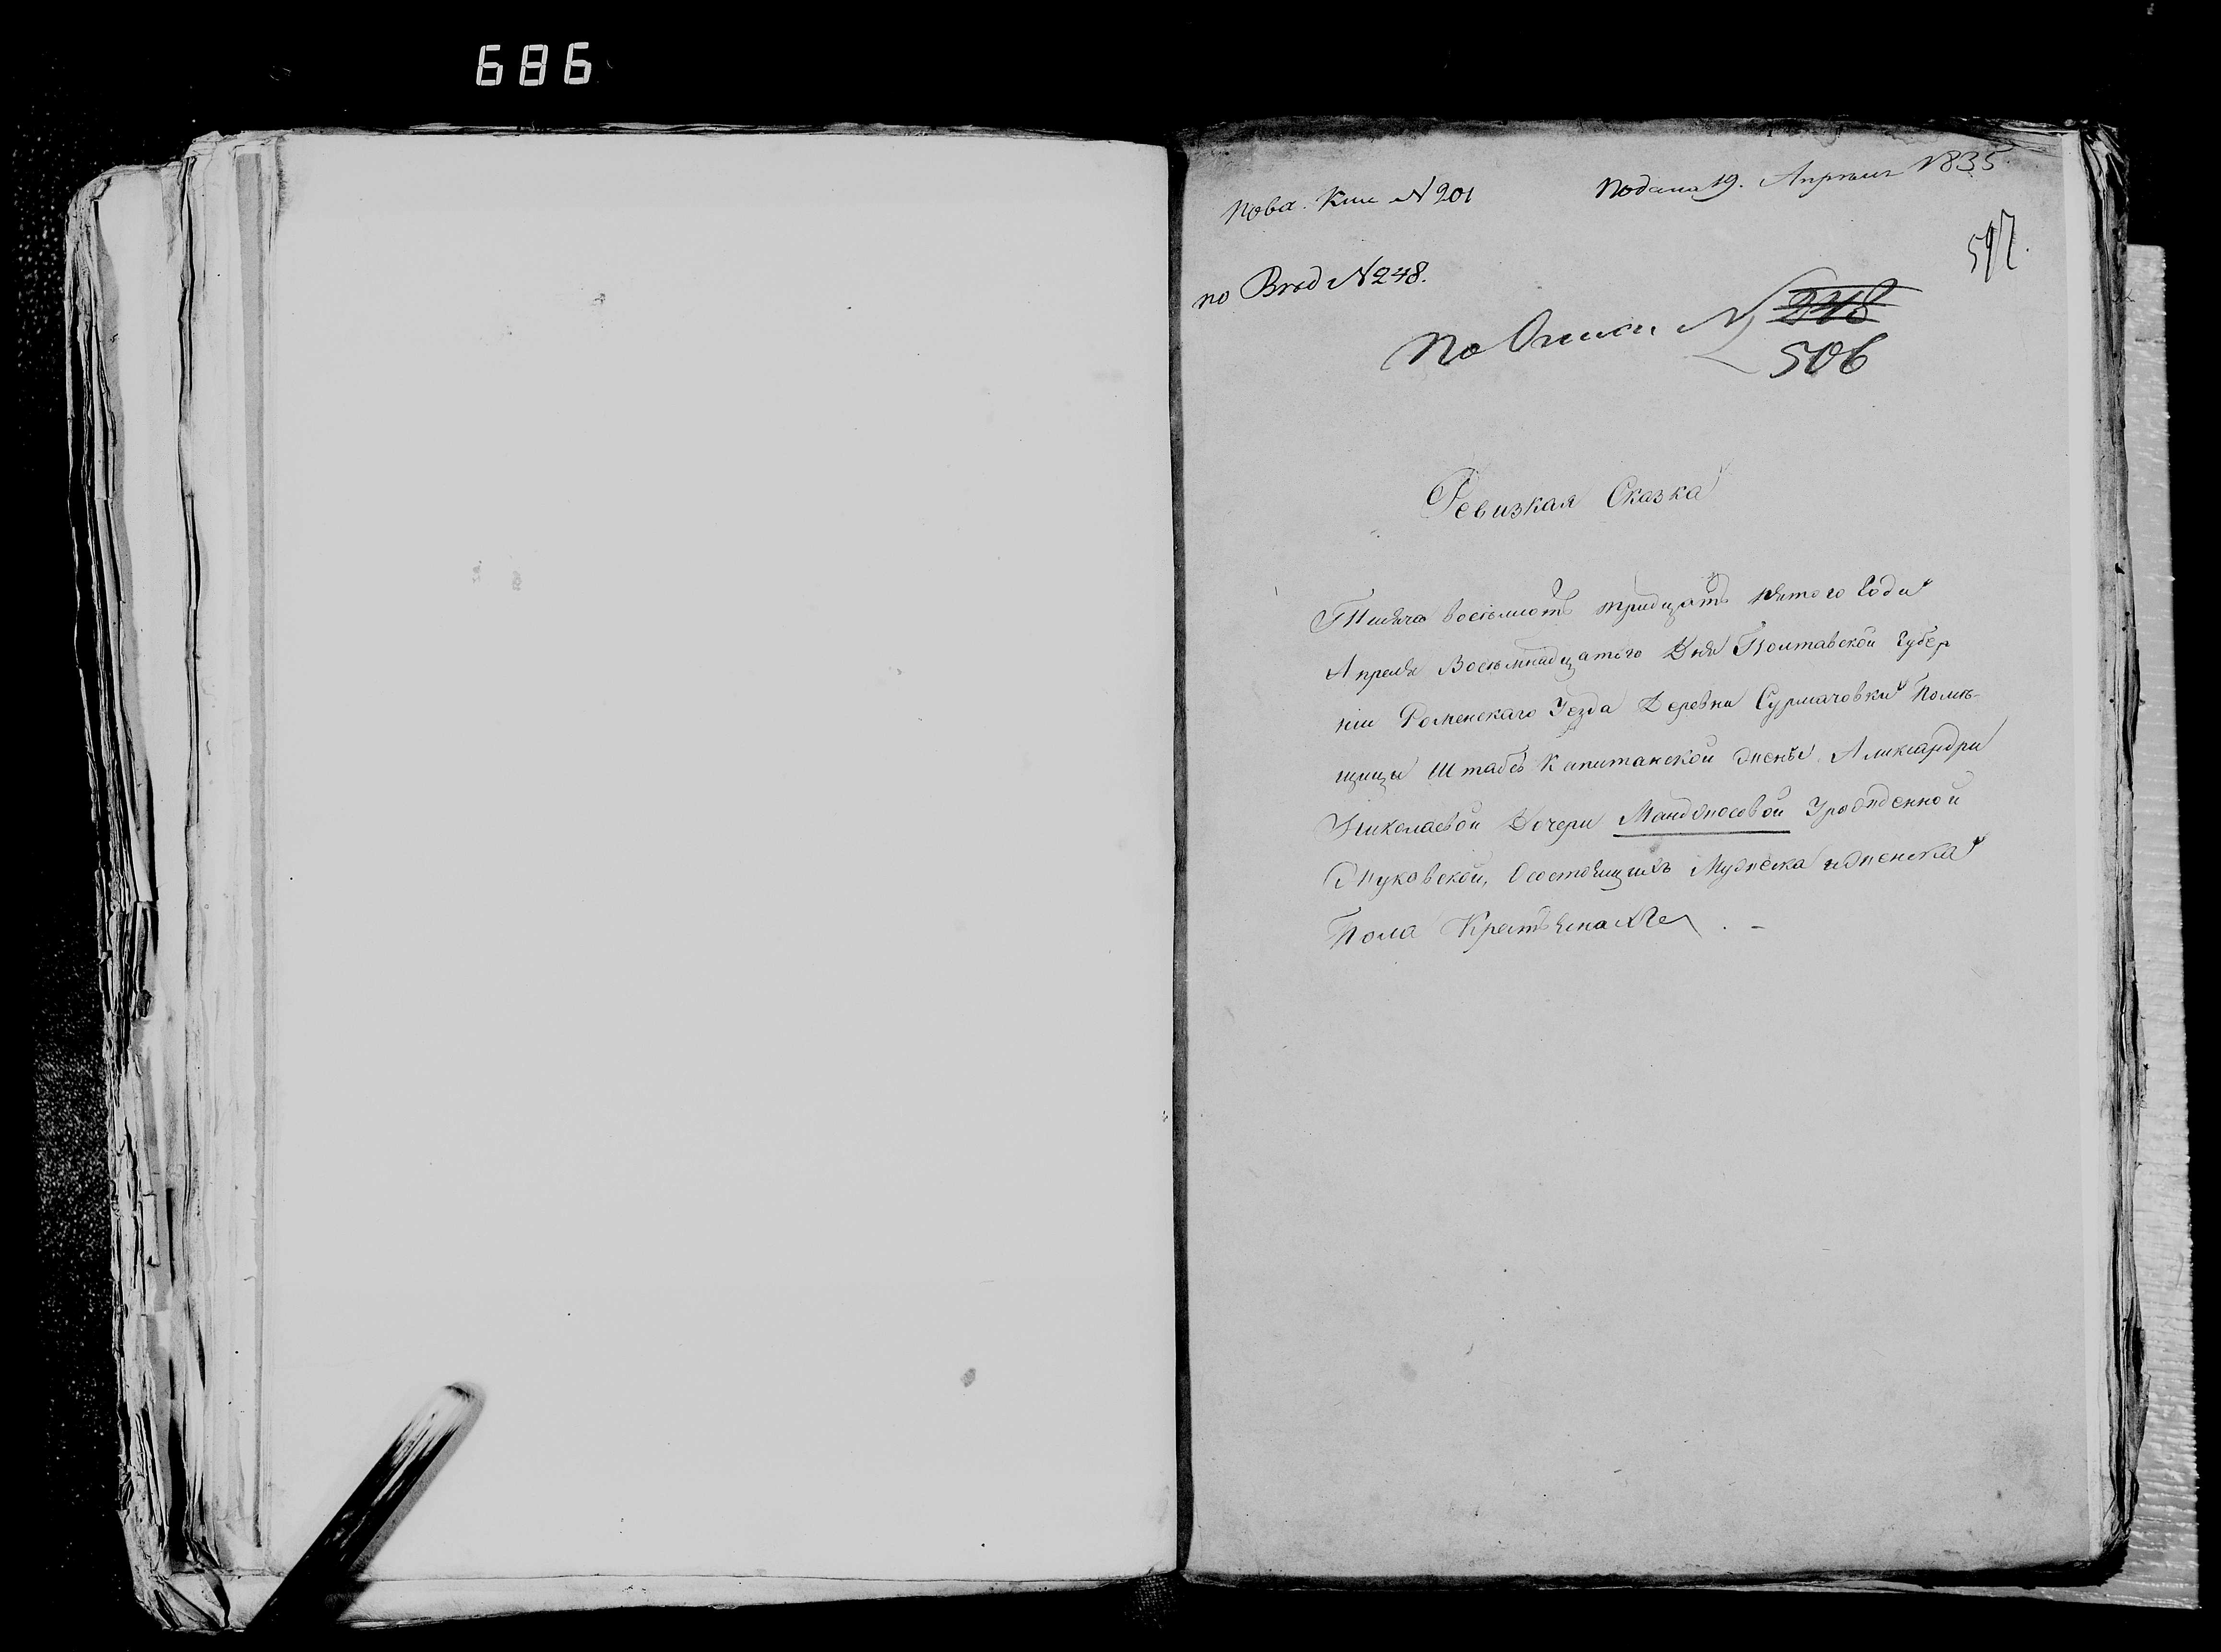 686
Подана 19. Апреля 1835.
№ 201
597.
по Вход № 248.
По Описи № 248
506
Ревизкая Сказка
Тысяча восемьсотъ тридцать пятого Года
Апреля Восемнадцатого Дня Полтавской Губер
ніи Роменскаго Уезда Деревни Сурмачовки Помѣ-
щицы Штабсъ Капитанской жены Александри
Николаевой Дочери Мандножосовой Урожденной
Жуковской, Осостоящихъ Мужеска и женска
Пола Крестьянахъ . -